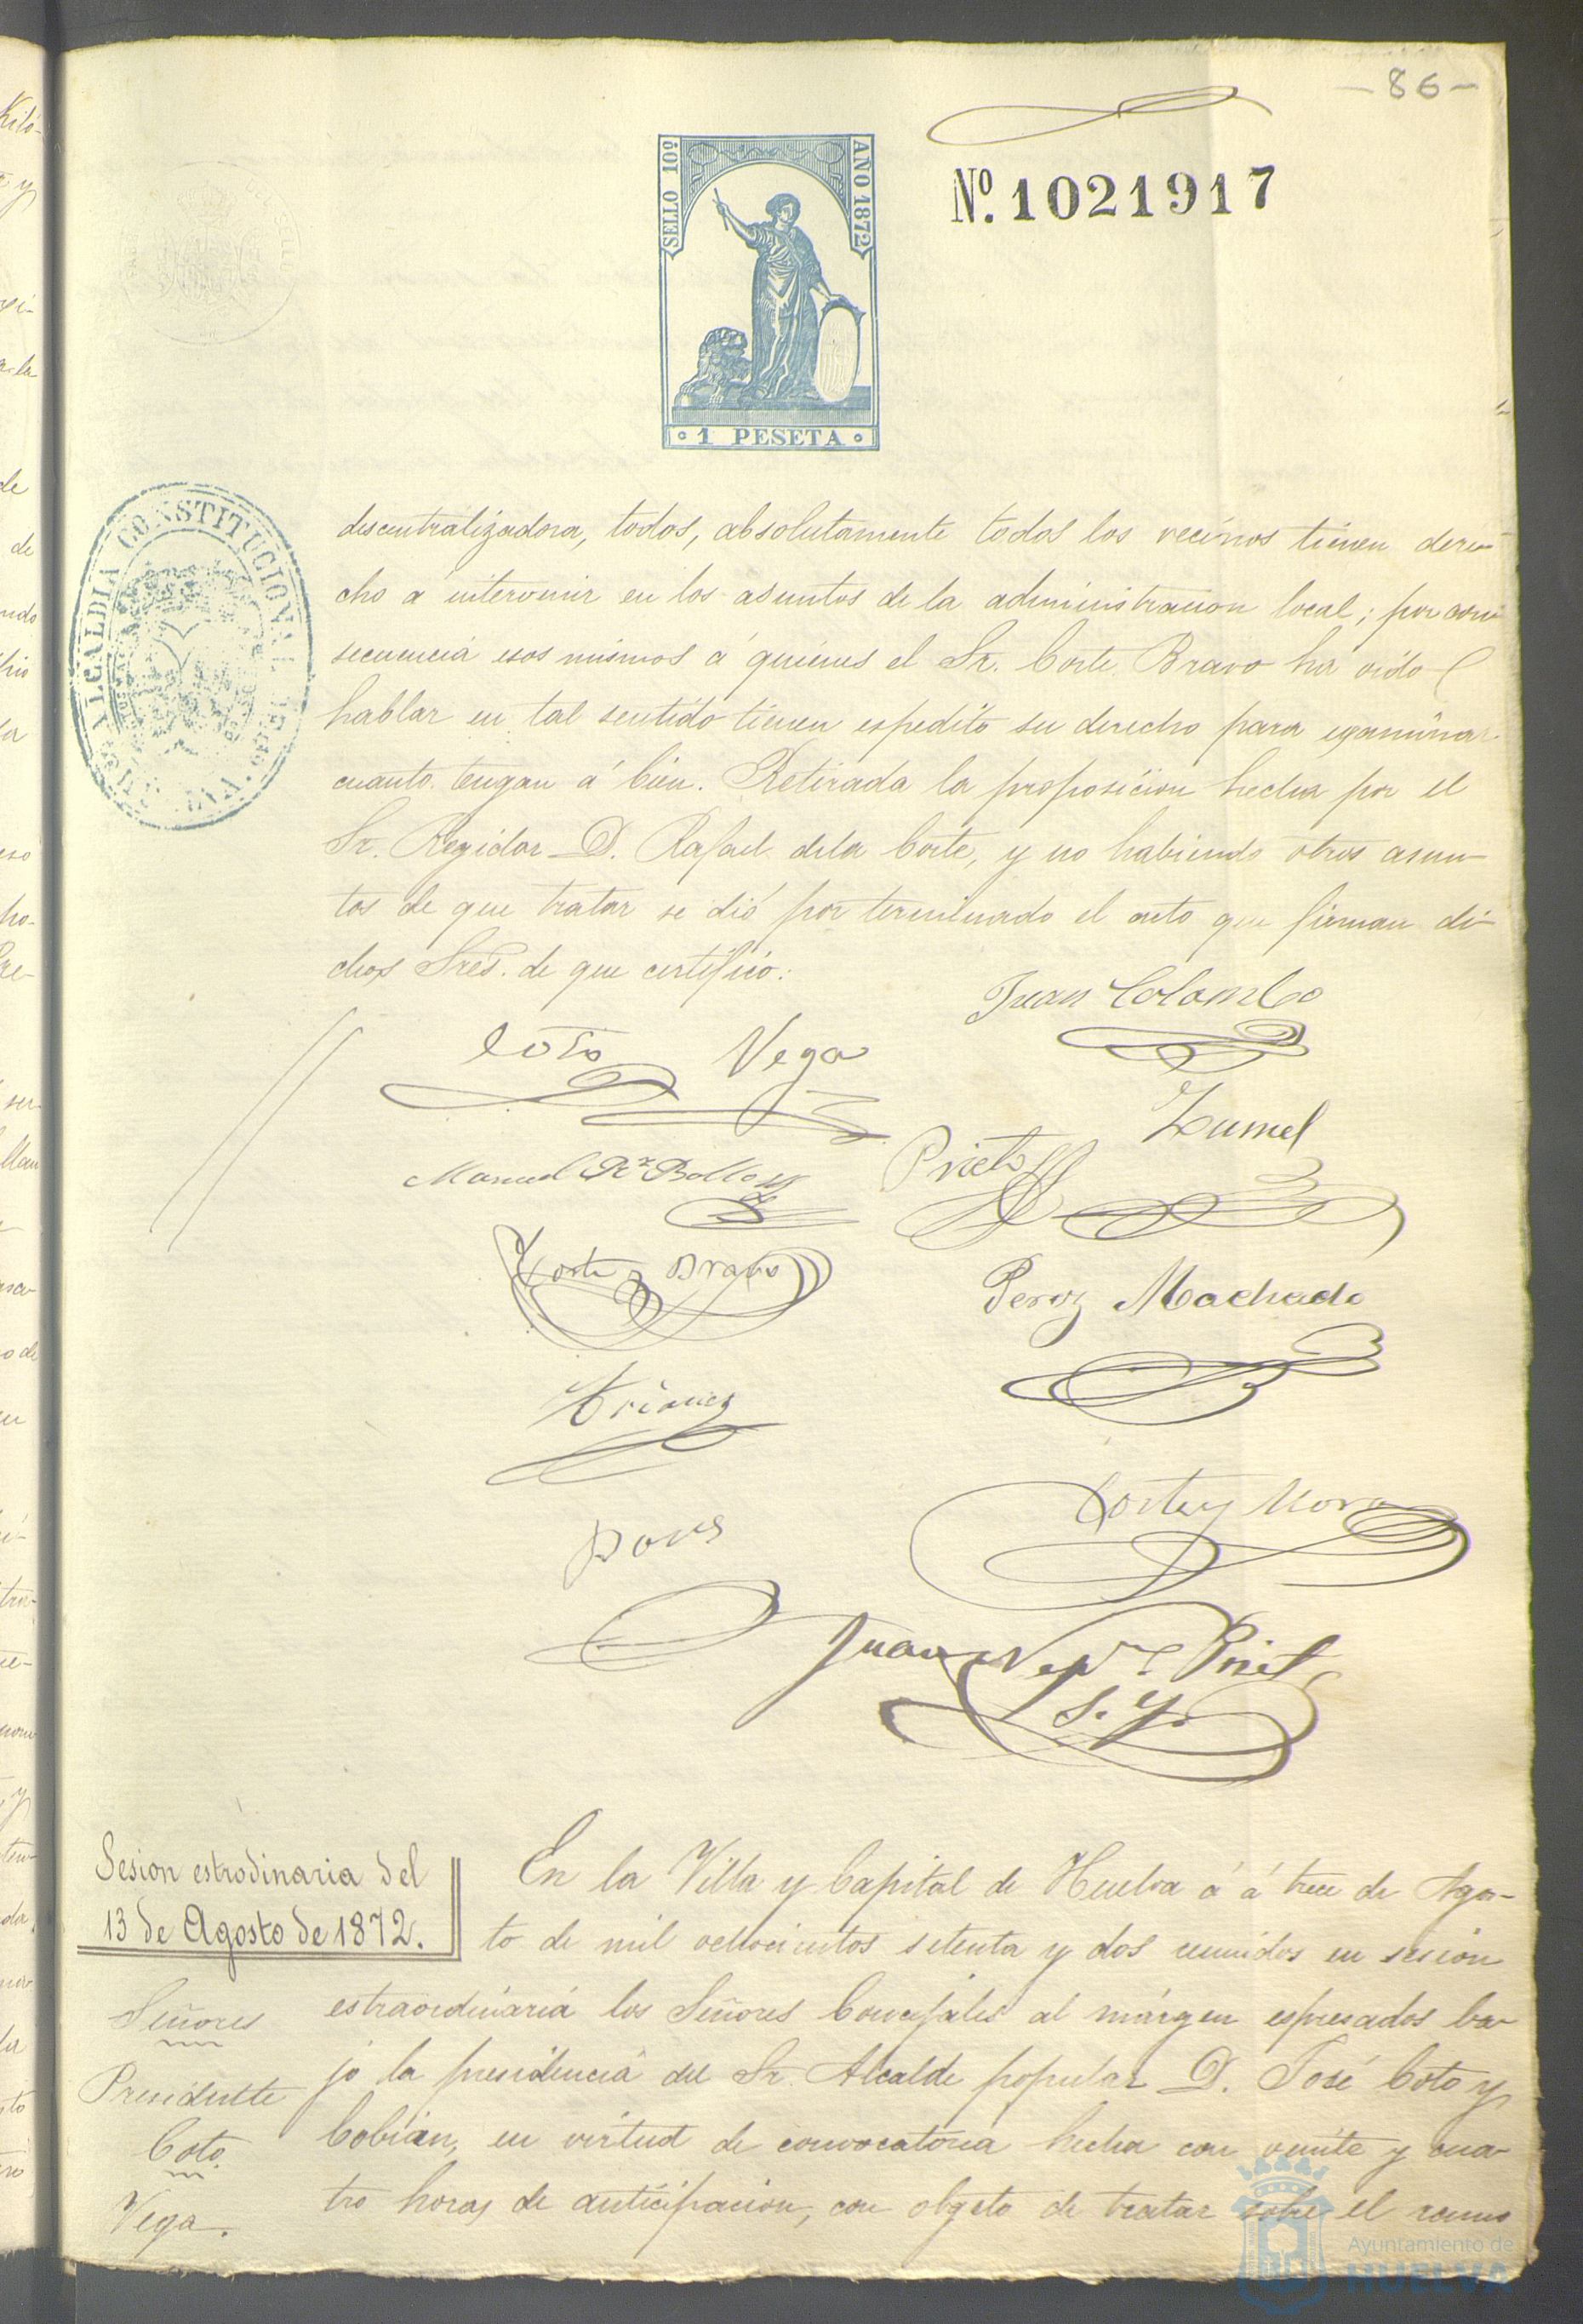 -86-
SELLO 10º
AÑO 1872
Nº. 1021917
1 PESETA
ALCALDIA CONSTITUCIONAL
HUELVA
descentralizadora, todos, absolutamente todos los vecinos tienen dere-
cho a intervenir en los asuntos de la administracion local; por con-
secuencia esos mismos á quienes el Sr. Corte Bravo ha oido
hablar en tal sentido tienen espedito su derecho para egsaminar
cuanto tengan á bien. Retirada la proposicion hecha por el
Sr. Regidor D. Rafael dela Corte, y no habiendo otros asun-
tos de que tratar se dió por terminado el acto que firman di-
chos Sres. de que certifico:
Juan Colombo
Coto Vega
Zumel
Manuel Rz
Prieto
Corte y Bravo
Perez Machado
Corte y Mora
Pons
Juan Nepº Prieto
S. Y.
Sesion estrodinaria del
13 de Agosto de 1872.
En la Villa y Capital de Huelva á á trece de Agos-
to de mil ochocientos setenta y dos reunidos en sesion
Señores
estraordinaria los Señores Concejales al márgen espresados ba-
Presidente
jo la presidencia del Sr. Alcalde popular D. José Coto y
Coto.
Cobian, en virtud de convocatoria hecha con veinte y cua-
Vega.
tro horas de anticipacion, con obgeto de tratar sobre el ramo
Ayuntamiento de
HUELVA